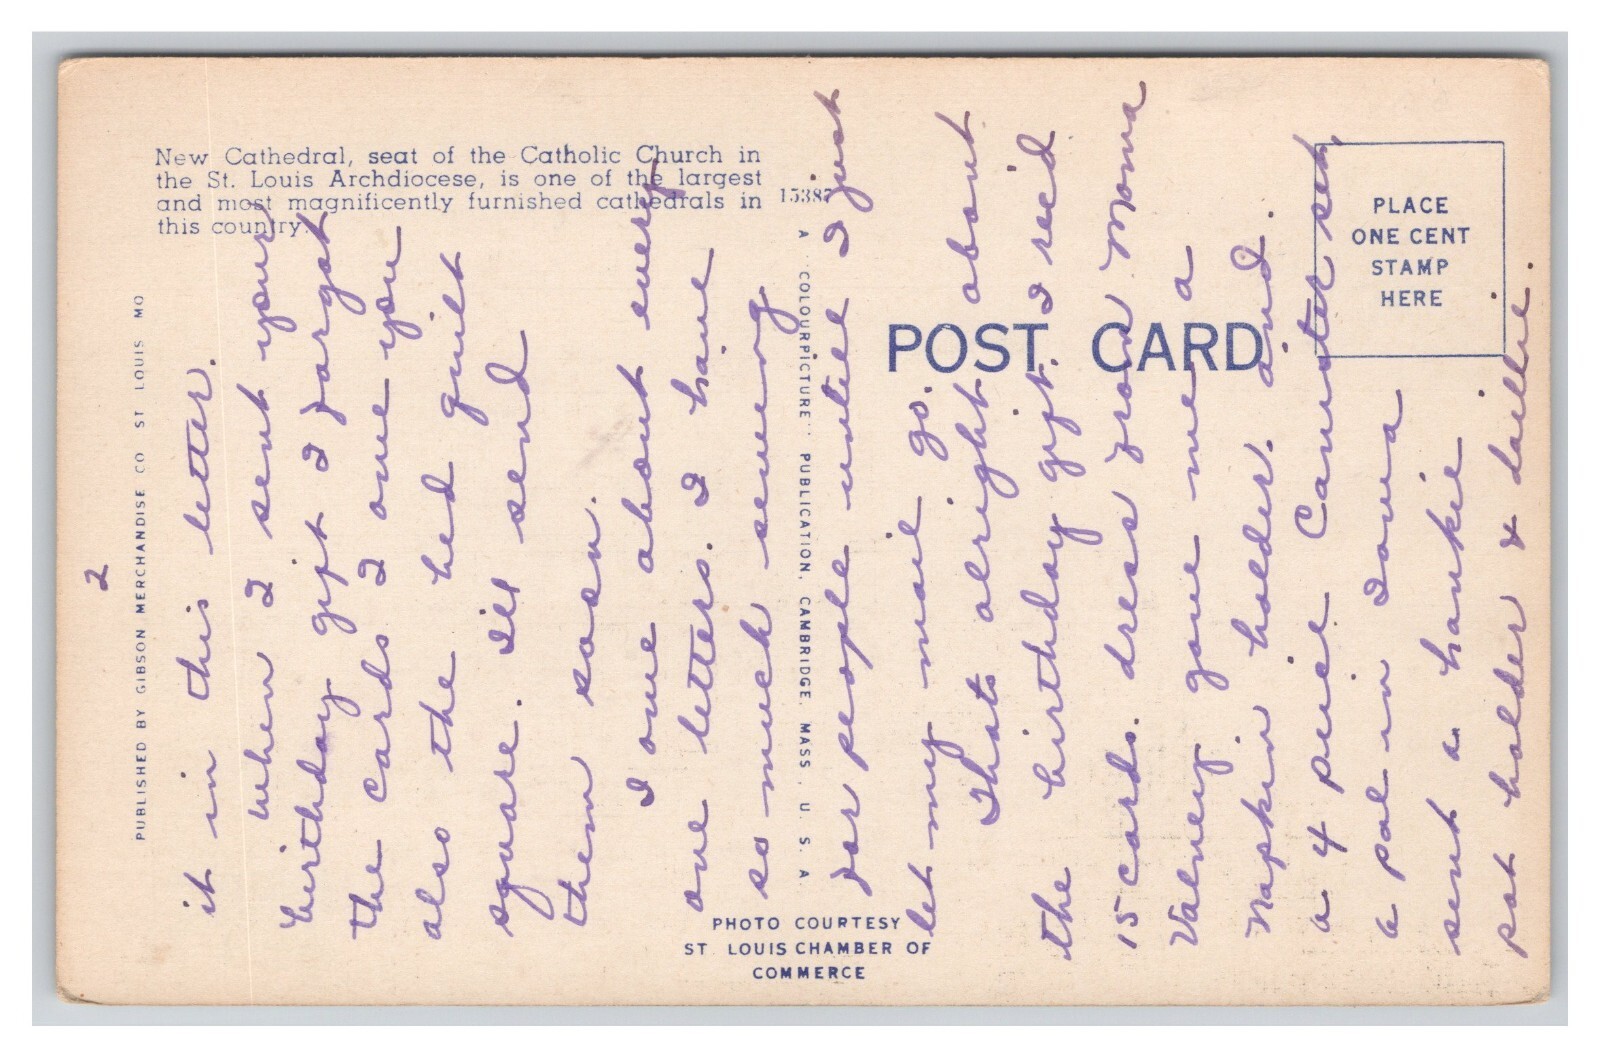 New Cathedral, seat of the Catholic Church in
the St. Louis Archdiocese, is one of the largest
and most magnificently furnished cathedrals in
this country.
15387
PUBLISHED BY GIBSON MERCHANDISE CO ST LOUIS MO
A "COLOURPICTURE" PUBLICATION, CAMBRIDGE, MASS., U. S. A.
POST CARD
PLACE
ONE CENT
STAMP
HERE
PHOTO COURTESY
ST. LOUIS CHAMBER OF
COMMERCE
2
it in this letter.
When I sent your
birthday gift I forgot
the cards I owe you
also the bed quilt
square. I'll send
them soon.
I owe about every
one letters. I have
so much sewing
for people until I just
let my mail go.
Thats alright about
the birthday gift. I rec'd
15 cards. dress from Moma
Valney gave me a
Napkin holder. and.
a 4 piece Canister set,
a pal in Iowa
sent a hankie
pot holder & dailie.